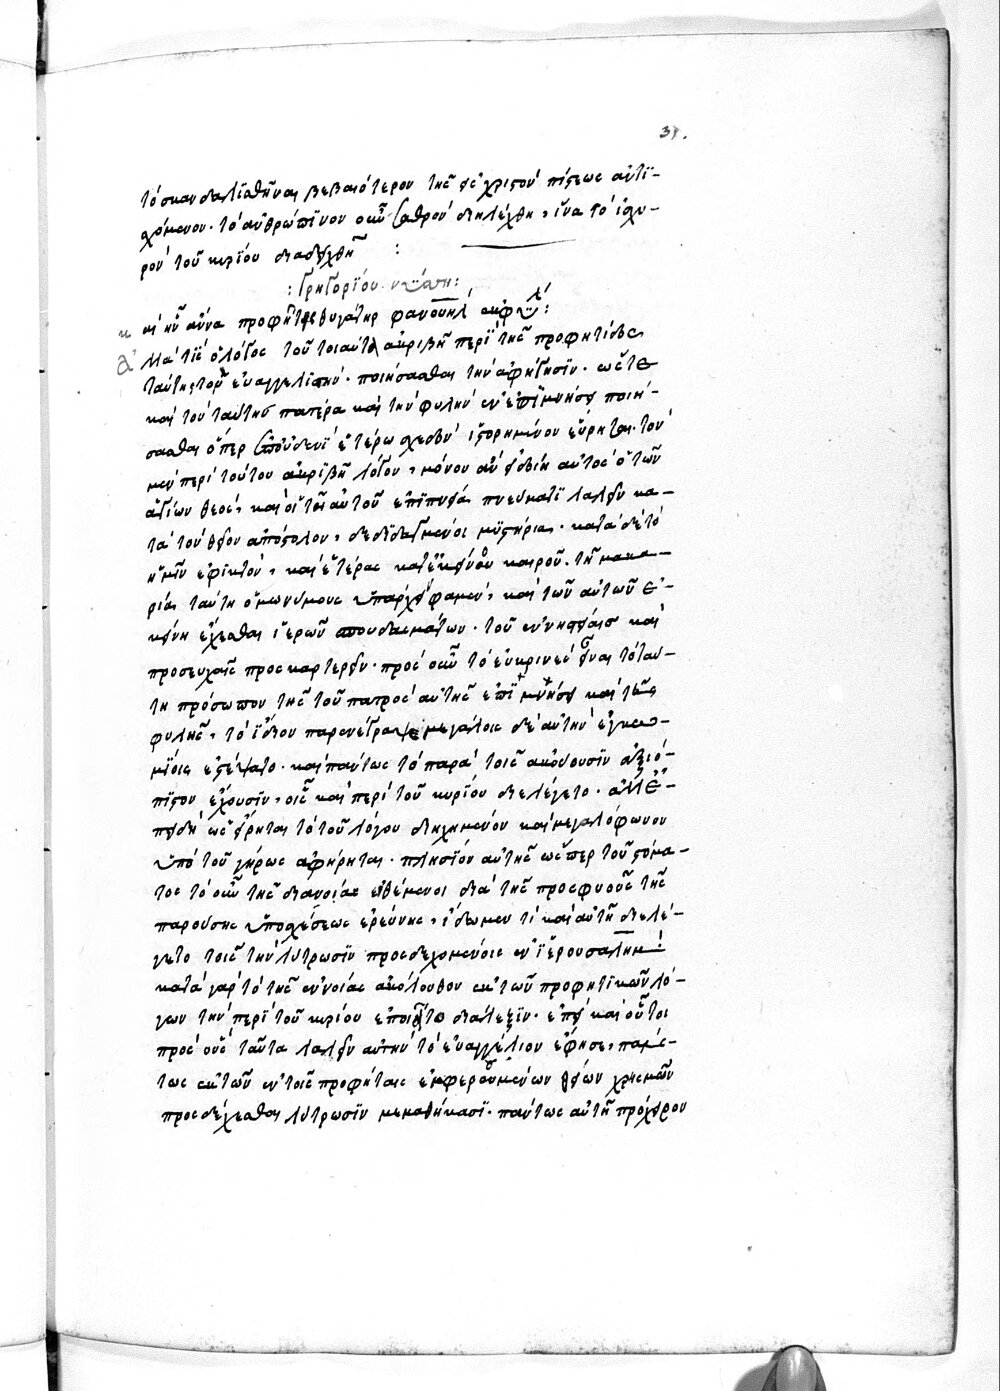 31.
τὸ σκανδαλισθῆναι βεβαιότερον τῆς εἰς χριστὸν πίστεως ἀντϊ-
χόμενον. τὸ ἀνθρώπϊνον οὖν σαθρὸν διηλέχθη, ἵνα τὸ ἰσχυ-
ρὸν τοῦ κυρίου διαδειχθῆ :
: Γρηγορΐου νύσης :
καὶ ἦν ἄννα προφῆτις θυγάτηρ φανουὴλ ἐκ φυλ :
Μὰ τίς ὁ λόγος τοῦ τοιαύτην ἀκριβῆ περὶ τῆς προφητίδος
ταύτης τὸν εὐαγγελιστὴν ποιήσασθαι τὴν ἀφήγησϊν. ὥστε
καὶ τὸν ταύτης πατέρα καὶ τὴν φυλὴν ἐν ἐπιμνήσει ποιή-
σασθαι ὅπερ ἐπ' οὐδενὶ ἑτέρω σχεδὸν ἱστορημένον εὕρηται. τὸν
μὲν περὶ τούτου ἀκριβῆ λόγον, μόνον ἂν εἰδείη αὐτὸς ὁ τῶν
ἁγίων θεὸς, καὶ οἱ τῆ αὐτοῦ ἐπιπνοία πνεύματι λαλεῖν κα-
τὰ τὸν θεῖον ἀπόστολον, δεδιδαγμένοι μυστήρια. κατὰ δὲ τὸ
ἡμῖν ἐφικτὸν, καὶ ἑτέρας κατ' ἐκεῖνου καιροῦ τῆ μακα-
ρία ταύτη ὁμωνύμους ὑπάρχειν φαμὲν, καὶ τῶν αὐτῶν ἐ-
κείνη ἔχεσθαι ἱερῶν σπουδασμάτων. τοῦ ἐν νηστείαις καὶ
προσευχαῖς προσκαρτερεῖν. πρὸς οὖν τὸ εὐκρινὲς εἶναι τὸ ταύ-
τη πρόσωπον τῆς τοῦ πατρὸς αὐτῆς ἐπϊμνήσει καὶ τῆς
φυλῆς, τὸ ἴδιον παρενέγραψε μεγάλοις δὲ αὐτὴν ἐγκω-
μίοις ἔστεψατο. καὶ πάντως τὸ παρὰ τοῖς ἀκούουσϊν ἀξιό-
πϊστον ἔχουσϊν, οἷς καὶ περὶ τοῦ κυρίου διελέγετο. ἀλλ' ἐ-
πειδὴ ὡς εἴρηται τὸ τοῦ λόγου διηχημένον καὶ μεγαλόφωνον
ὑπὸ τοῦ γήρως ἀφήρηται. πλησίον αὐτῆς ὥσπερ τοῦ στόμα-
τος τὸ οὖς τῆς διανοίας θέμενοι διὰ τῆς προσφυοῦς τῆς
παρούσης ὑποθέσεως ἐρεύνης, ἴδωμεν τί καὶ αὐτὴ διελέ-
γετο τοῖς τὴν λύτρωσϊν προσδεχομένοις ἐν ἱερουσαλήμ :
κατὰ γὰρ τὸ τῆς ἐννοίας ἀκόλουθον ἐκ τῶν προφητικῶν λό-
γων τὴν περὶ τοῦ κυρίου ἐποιεῖτο διάλεξϊν. ἐπεὶ καὶ οὗτοι
πρὸς οὓς ταῦτα λαλεῖν αὐτὴν τὸ εὐαγγέλιον ἔφησε, πάν-
τως ἐκ τῶν ἐν τοῖς προφήταις ἐμφερομένων θείων χρησμῶν
προσδέχεσθαι λύτρωσϊν μεμαθήκασϊ. πάντως αὐτῆ πρόχειρον